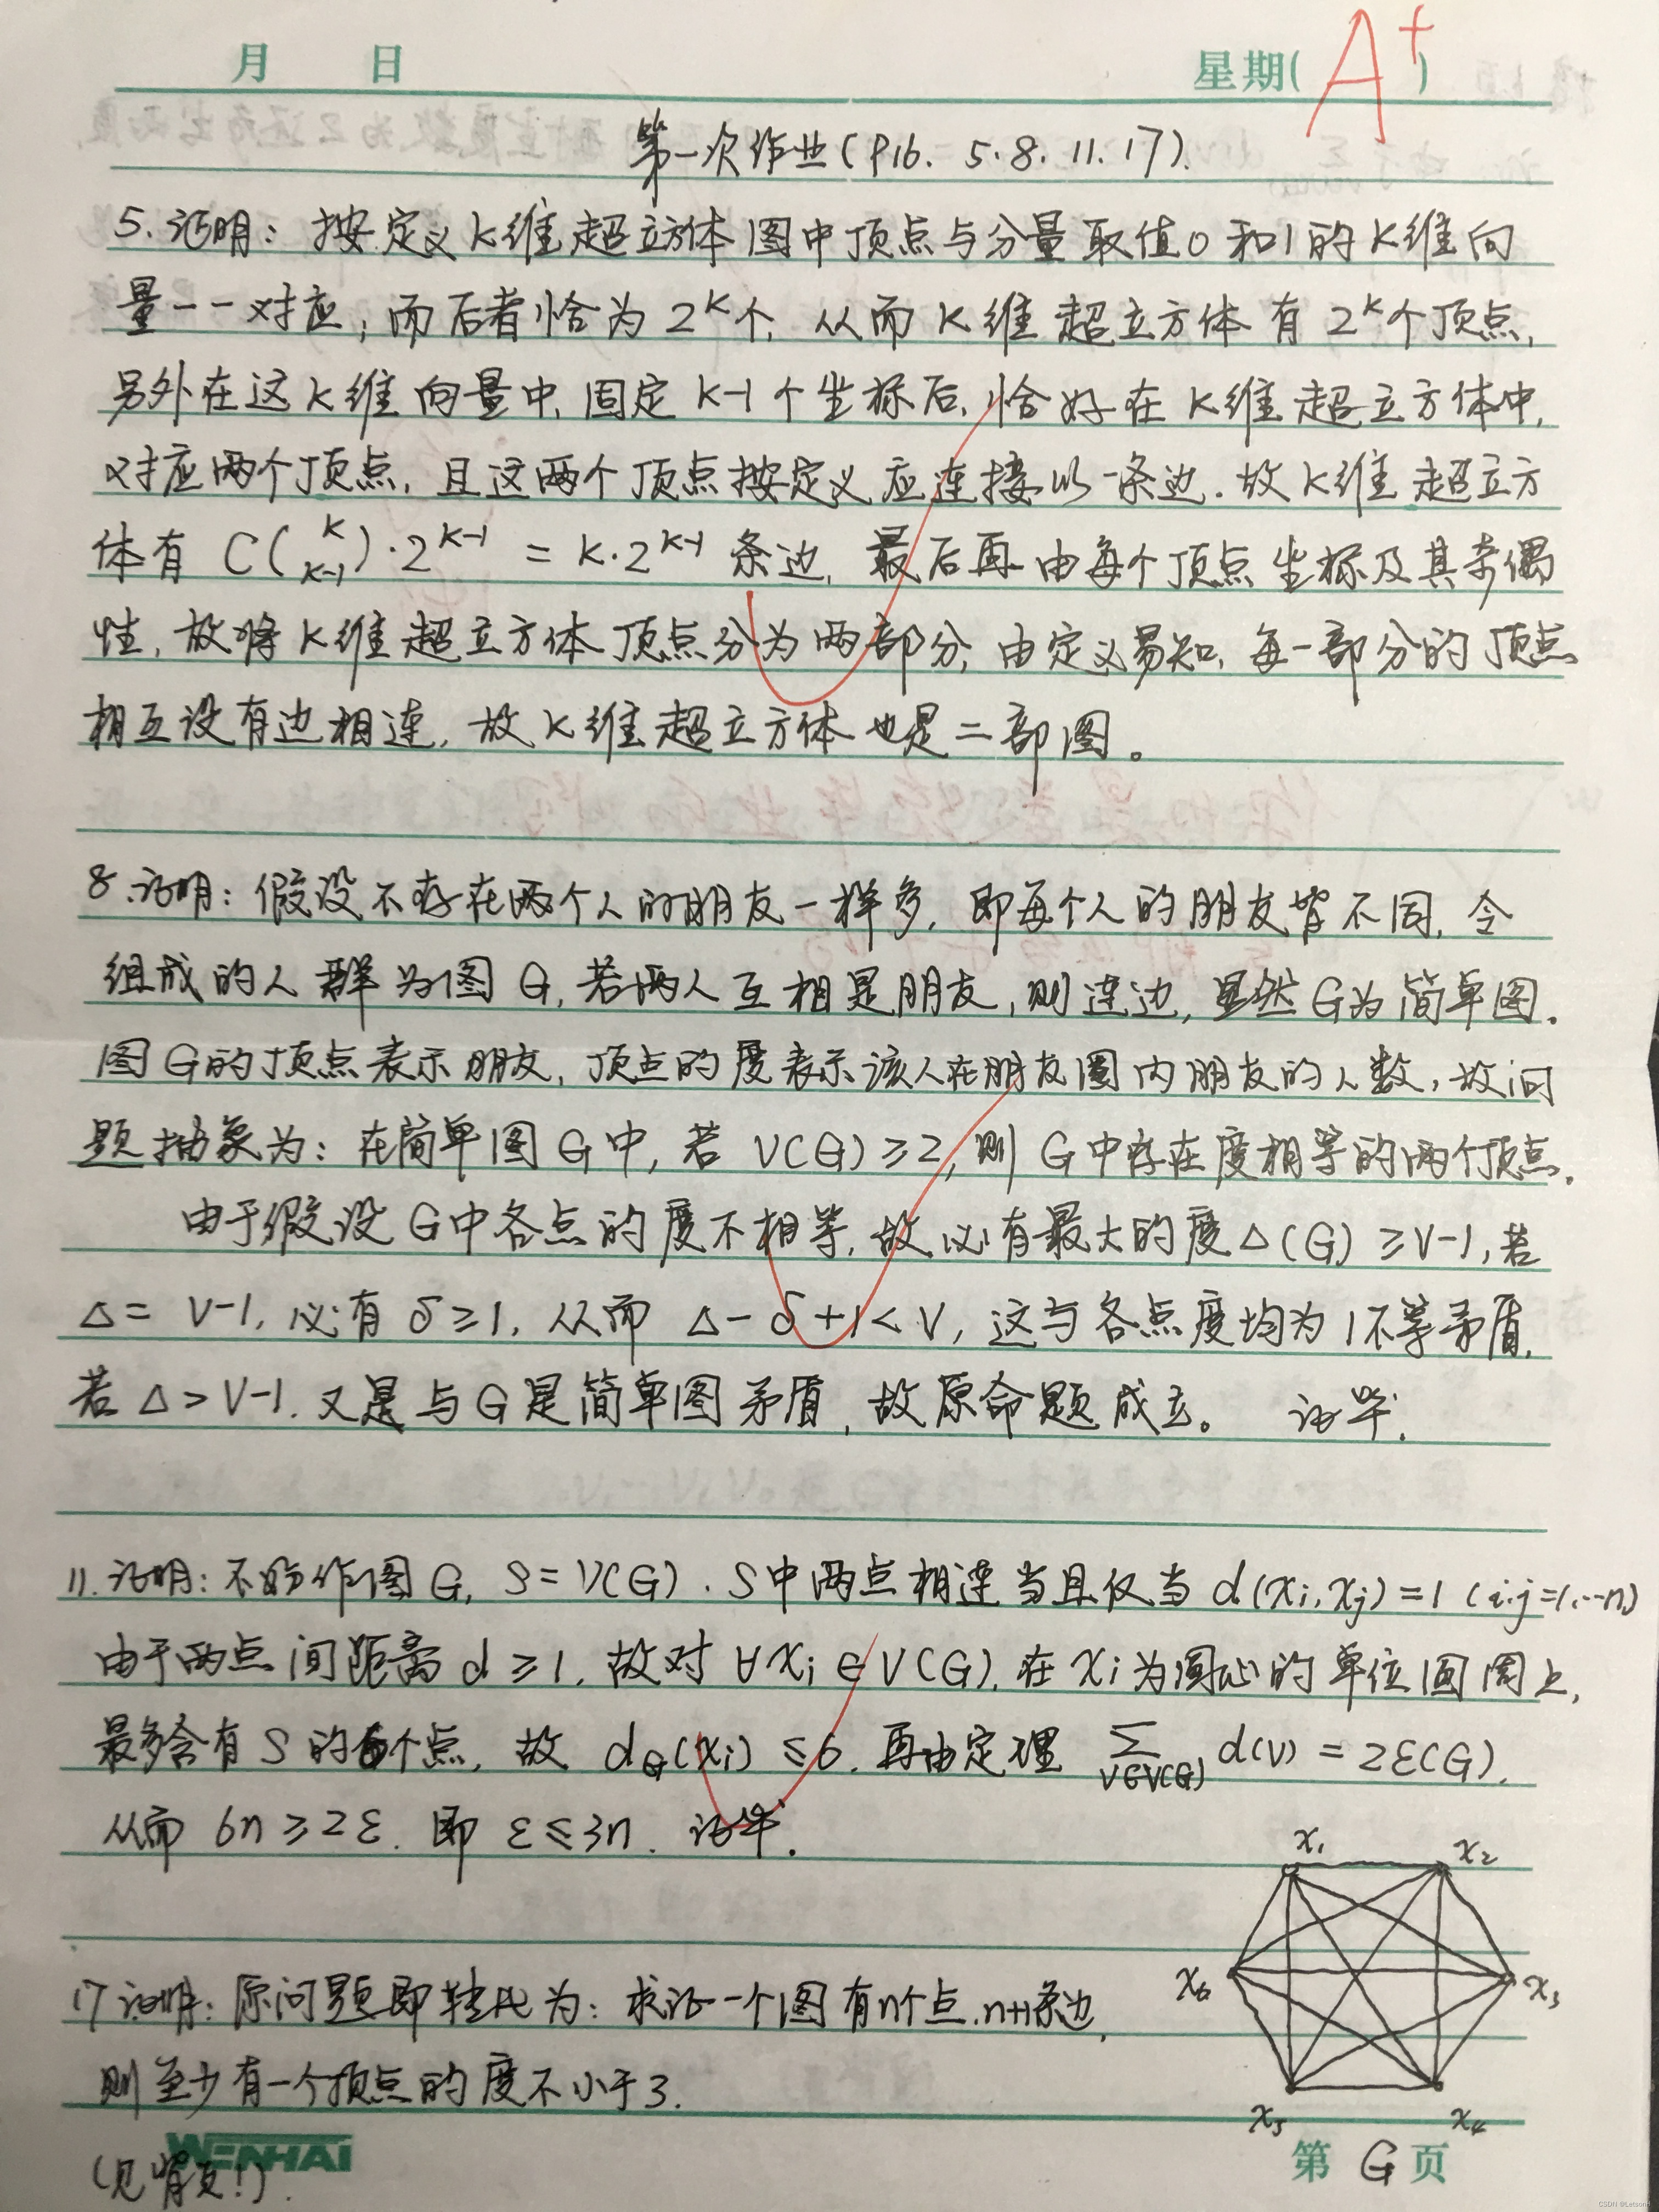 月 日 星期( )
A+
第一次作业(P16. 5. 8. 11. 17).
5.证明: 按定义K维超立方体图中顶点与分量取值0和1的K维向
量一一对应,而后者恰为2^K个, 从而K维超立方体有2^K个顶点,
另外在这K维向量中,固定K-1个坐标后,恰好在K维超立方体中,
对应两个顶点, 且这两个顶点按定义应连接以一条边. 故K维超立方
体有 C(K K-1)·2^{K-1} = K·2^{K-1} 条边, 最后再由每个顶点坐标及其奇偶
性, 故将K维超立方体顶点分为两部分, 由定义易知, 每一部分的顶点
相互没有边相连, 故K维超立方体也是二部图。
8.证明: 假设不存在两个人的朋友一样多, 即每个人的朋友皆不同, 令
组成的人群为图G, 若两人互相是朋友, 则连边, 显然G为简单图.
图G的顶点表示朋友, 顶点的度表示该人在朋友圈内朋友的人数, 故问
题抽象为: 在简单图G中, 若 V(G)≥2, 则G中存在度相等的两个顶点.
由于假设G中各点的度不相等, 故必有最大的度Δ(G)≥V-1, 若
Δ= V-1, 必有 δ≥1, 从而 Δ-δ+1<V, 这与各点度均为1不等矛盾,
若Δ>V-1. 又是与G是简单图矛盾, 故原命题成立。 证毕.
11.证明: 不妨作图G, S=V(G). S中两点相连当且仅当 d(xi,xj)=1 (i.j=1,…n)
由于两点间距离 d≥1, 故对 ∀xi∈V(G), 在xi为圆心的单位圆周上,
最多含有S的6个点, 故 d_G(xi)≤6. 再由定理 Σ_{V∈V(G)} d(V) = 2ε(G),
从而 6n≥2ε. 即 ε≤3n. 证毕.
x1 x2
x6 x3
x5 x4
17.证明: 原问题即转化为: 求证一个图有n个点,n+1条边,
则至少有一个顶点的度不小于3.
(见背页!).
WENHAI
第 G 页
CSDN @Letsonl